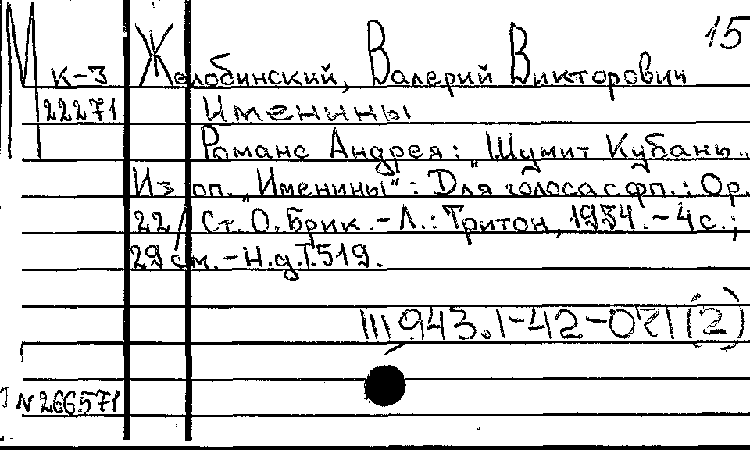 М
15
К-3 Желобинский, Валерий Викторович
22271 Именины
Романс Андрея: "Шумит Кубань..
Из оп. "Именины": Для голоса с фп.: Op.
22/ Ст. О. Брик. - Л.: Тритон, 1934. - 4 с.;
29 см. - Н.д.Т.519.
Ш943.1-42-021(2)
N 266571